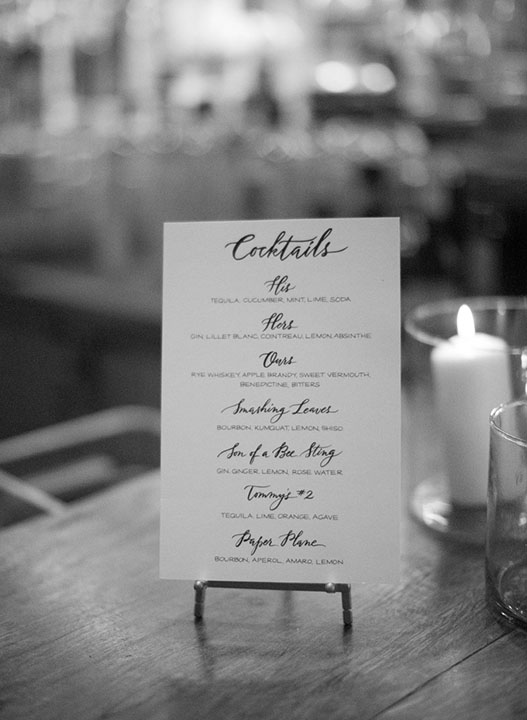 Cocktails
His
TEQUILA, CUCUMBER, MINT, LIME, SODA
Hers
GIN, LILLET BLANC, COINTREAU, LEMON, ABSINTHE
Ours
RYE WHISKEY, APPLE BRANDY, SWEET VERMOUTH,
BENEDICTINE, BITTERS
Smashing Leaves
BOURBON, KUMQUAT, LEMON, SHISO
Son of a Bee Sting
GIN, GINGER, LEMON, ROSE WATER
Tommy's #2
TEQUILA, LIME, ORANGE, AGAVE
Paper Plane
BOURBON, APEROL, AMARO, LEMON